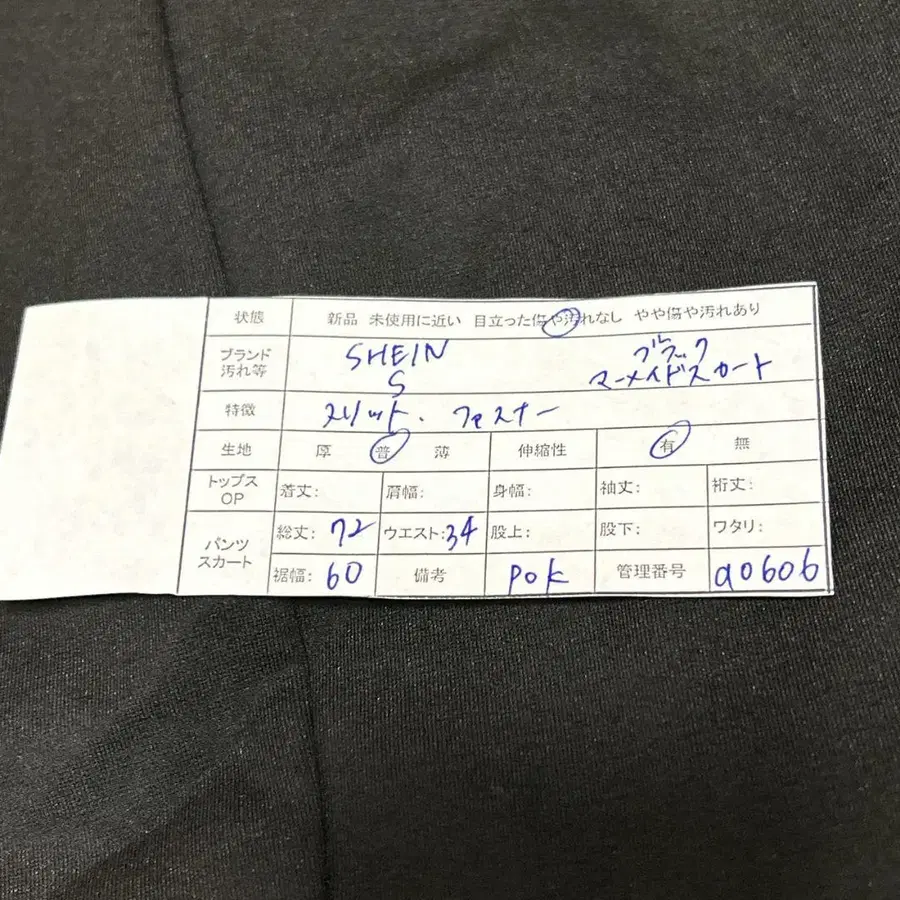 状態 新品 未使用に近い 目立った傷や汚れなし やや傷や汚れあり
ブランド 汚れ等 SHEIN S ブラック マーメイドスカート
特徴 スリット・ファスナー
生地 厚 普 薄 伸縮性 有 無
トップス OP 着丈: 肩幅: 身幅: 袖丈: 裄丈:
パンツ スカート 総丈: 72 ウエスト: 34 股上: 股下: ワタリ:
裾幅: 60 備考 POK 管理番号 a0606